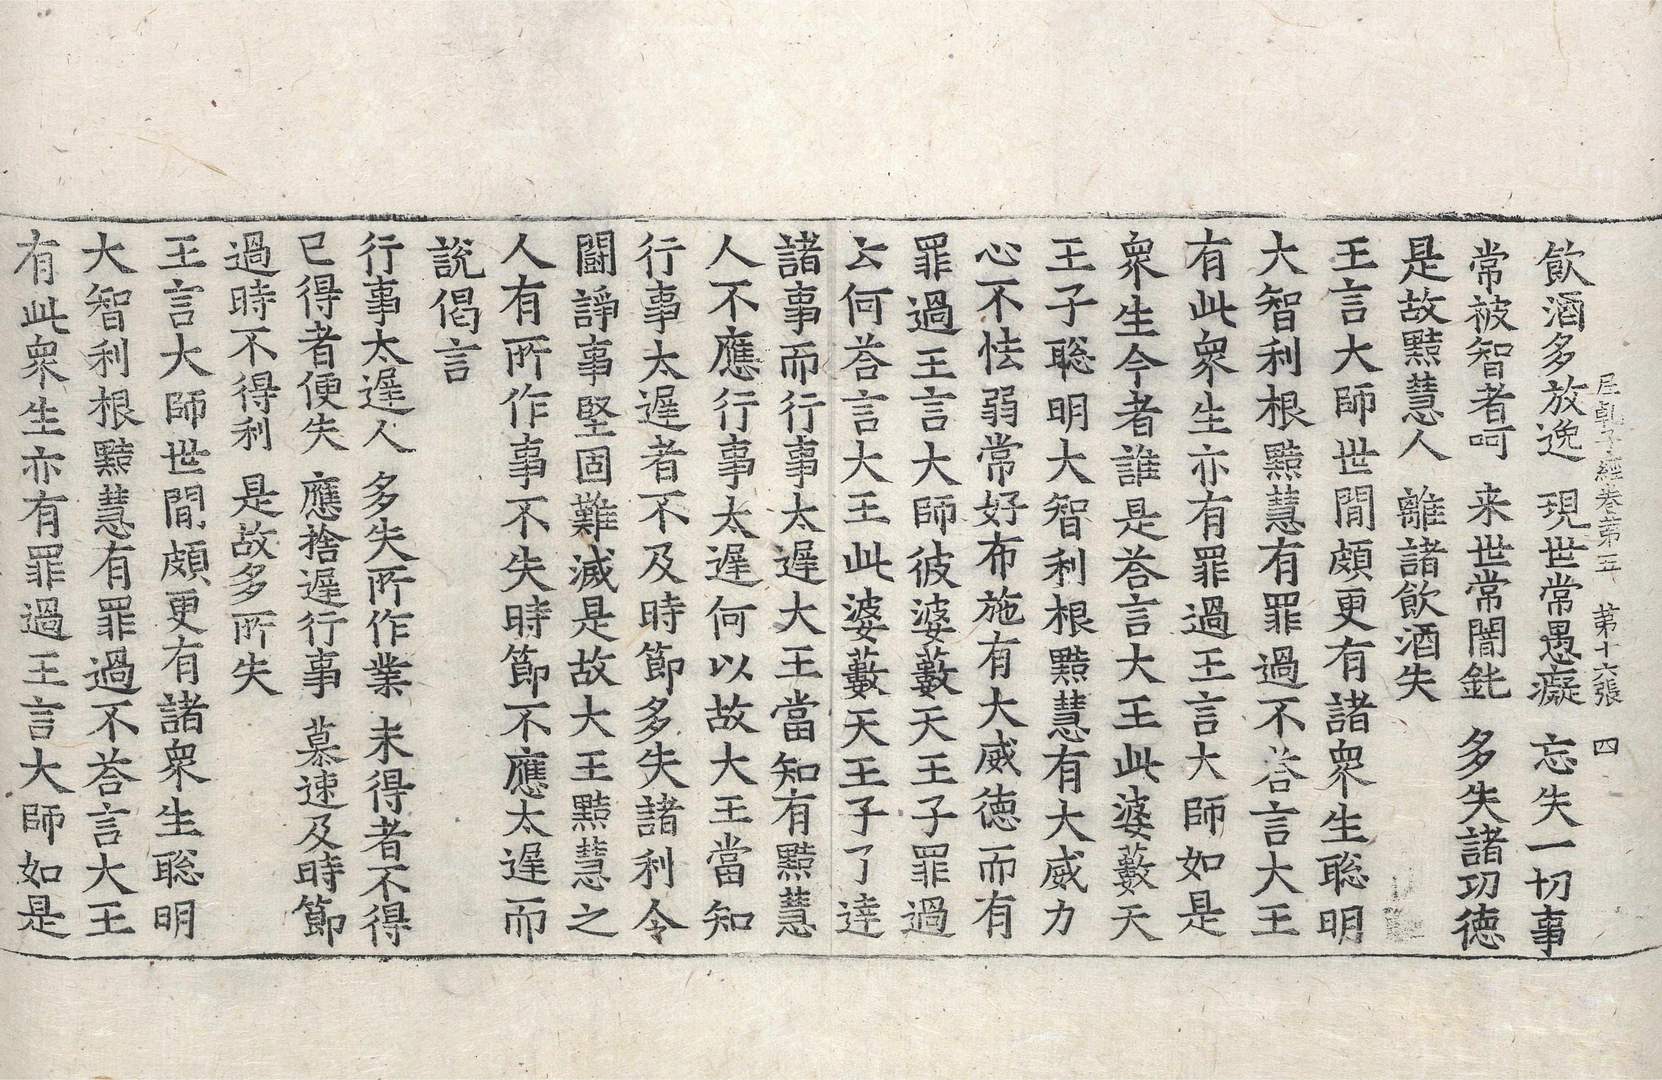 尼乹子經卷第五 第十六張 四
飲酒多放逸 現世常愚癡 忘失一切事
常被智者呵 来世常闇鈍 多失諸功德
是故黠慧人 離諸飲酒失
王言大師世間頗更有諸衆生聡明
大智利根黠慧有罪過不荅言大王
有此衆生亦有罪過王言大師如是
衆生今者誰是荅言大王此婆藪天
王子聡明大智利根黠慧有大威力
心不怯弱常好布施有大威德而有
罪過王言大師彼婆藪天王子罪過
云何荅言大王此婆藪天王子了達
諸事而行事太遅大王當知有黠慧
人不應行事太遅何以故大王當知
行事太遅者不及時節多失諸利令
鬪諍事堅固難滅是故大王黠慧之
人有所作事不失時節不應太遅而
說偈言
行事太遅人 多失所作業 未得者不得
已得者便失 應捨遅行事 慕速及時節
過時不得利 是故多所失
王言大師世間頗更有諸衆生聡明
大智利根黠慧有罪過不荅言大王
有此衆生亦有罪過王言大師如是